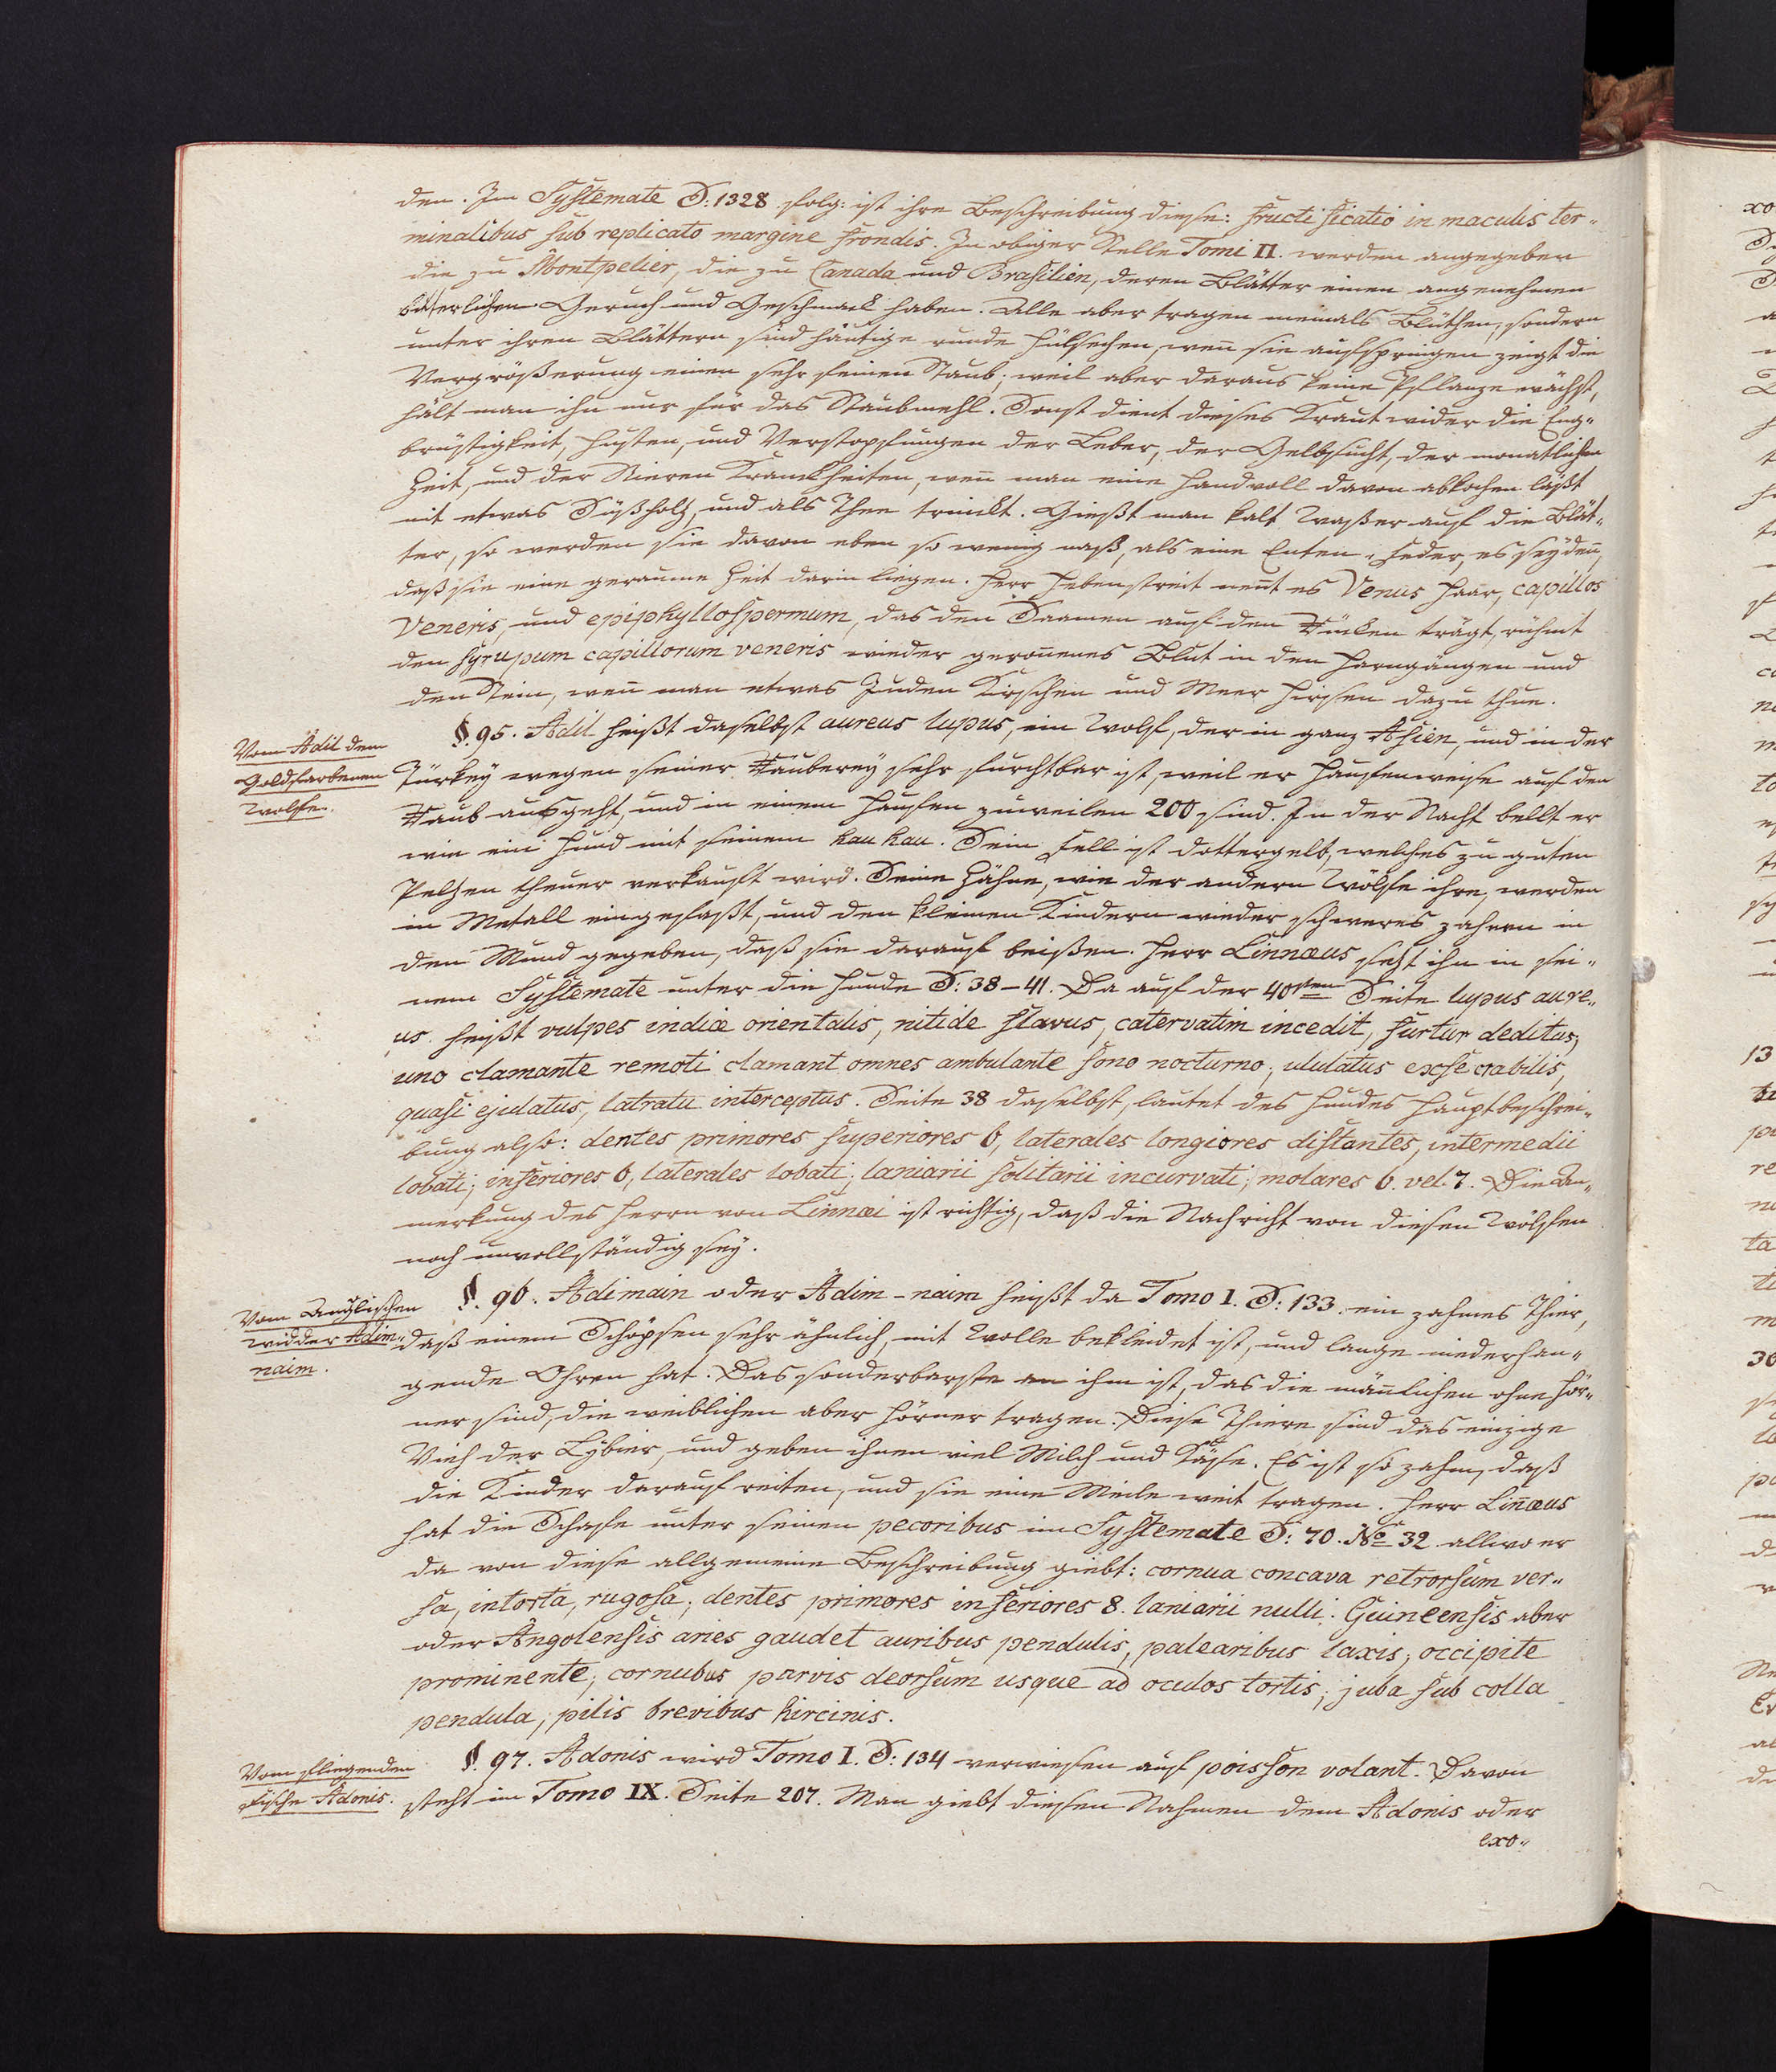 den. Im Systemate S: 1328 folg: ist ihre Beschreibung diese: fructificatio in maculis ter-
minalibus sub replicato margine frondis. In obiger Stelle Tomi II. werden angegeben
die zu Montpelier, die zu Canada und Brasilien, deren Blätter einen angenehmen
bitterlichen Geruch und Geschmack haben. Alle aber tragen niemals Blüthen, sondern
unter ihren Blättern sind häutige runde Hülschen, weñ sie aufspringen zeigt die
Vergrößerung einen sehr feinen Staub; weil aber daraus keine Pflanze wächst,
hält man ihn nur für das Staubmehl. Sonst dient dieses Kraut wider die Eng-
brüstigkeit, Husten, und Verstopfungen der Leber, der Gelbsucht, der monatlichen
Zeit, und der Nieren Kranckheiten, weñ man eine Handvoll davon abkochen läßt
mit etwas Süßholz, und als Thee trinckt. Gießt man kalt Waßer auf die Blät-
ter, so werden sie davon eben so wenig naß, als eine Enten-Feder, es seydeñ,
daß sie eine geraume Zeit darin liegen. Herr Hebenstreit neñt es Venus Haar, capillos
Veneris, und epiphyllospermum, das den Saamen auf den Rücken trägt, rühmt
den syrupum capillorum veneris wieder geroñenes Blut in den Harngängen und
den Stein, weñ man etwas Juden Kirschen und Meer Hirsen dazu thue.
Vom Adil dem
Goldfarbenen
Wolfe.
§. 95. Adil heißt daselbst aureus lupus, ein Wolf, der in ganz Asien, und in der
Türkey wegen seiner Räuberey sehr furchtbar ist, weil er Haufenweise auf den
Raub ausgeht, und in einem Haufen zuweilen 200 sind. In der Nacht bellt er
wie ein Hund mit seinem hau hau. Sein Fell ist dottergelb, welches zu guten
Pelzen theuer verkauft wird. Seine Zähne, wie der andern Wölfe ihre, werden
in Metall eingefaßt, und den kleinen Kindern wieder schweres zahnen in
den Mund gegeben, daß sie darauf beißen. Herr Linnæus sezt ihn in sei-
nem Systemate unter die Hunde S: 38–41. Da auf der 40sten Seite lupus aure-
us heißt vulpes indiæ orientalis, nitide flavus, catervatim incedit, furtur deditus;
uno clamante remoti clamant omnes ambulante sono nocturno; ululatus exsecrabilis,
quasi ejulatus, latratu interceptus. Seite 38 daselbst, lautet des Hundes Hauptbeschrei-
bung also: dentes primores superiores 6, laterales longiores distantes, intermedii
lobati; inferiores 6, laterales lobati; laniarii solitarii incurvati; molares 6. vel. 7. Die An-
merkung des Herrn von Linnæi ist richtig, daß die Nachricht von diesen Wölfen
noch unvollständig sey.
Vom
Widder Adim-
naim.
§. 96. Adimain oder Adim-naim heißt da Tomo I. S: 133. ein zahmes Thier,
daß einem Schöpsen sehr ähnlich, mit Wolle bekleidet ist, und lange niederhan-
gende Ohren hat. Das sonderbarste an ihm ist, das die mäñlichen ohne Hör-
ner sind, die weiblichen aber Hörner tragen. Diese Thiere sind das einzige
Vieh der Lybier, und geben ihnen viel Milch und Käse. Es ist so zahm, daß
die Kinder darauf reiten, und sie eine Meile weit tragen. Herr Liñæus
hat die Schafe unter seinen pecoribus im Systemate S: 70. No 32 allwo er
da von diese allgemeine Beschreibung giebt: cornua concava retrorsum ver-
sa, intorta, rugosa; dentes primores inferiores 8. laniarii nulli. Guineensis aber
oder Angolensis aries gaudet auribus pendulis, palearibus laxis, occipite
prominente; cornubus parvis deorsum usque ad oculos tortis; juba sub colla
pendula; pilis brevibus hircinis.
Vom fliegenden
Fische Adonis.
§. 97. Adonis wird Tomo I. S: 134 verwiesen auf poisson volant. Davon
steht im Tomo IX. Seite 207. Man giebt diesen Nahmen dem Adonis oder
exo-